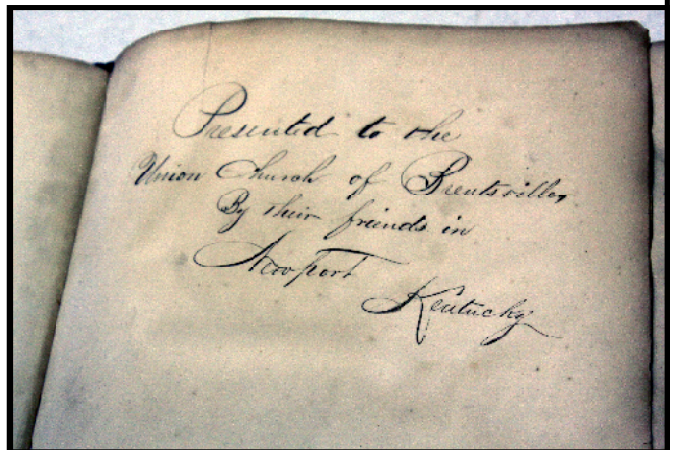 Presented to the
Union Church of Brentsville,
By their friends in
Newport
Kentucky